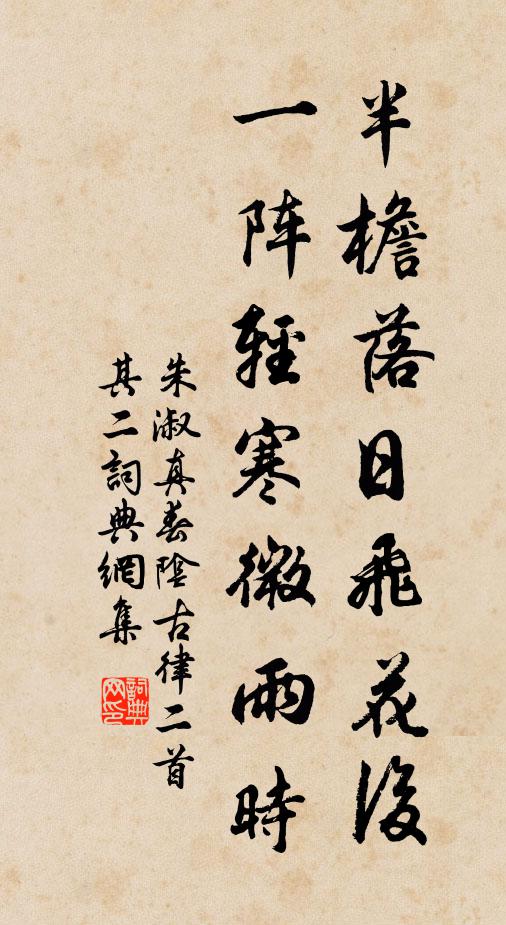 半檐落日飛花後
一阵輕寒微雨時
朱淑真春陰古律二首
其二詞典網集
詞典网印